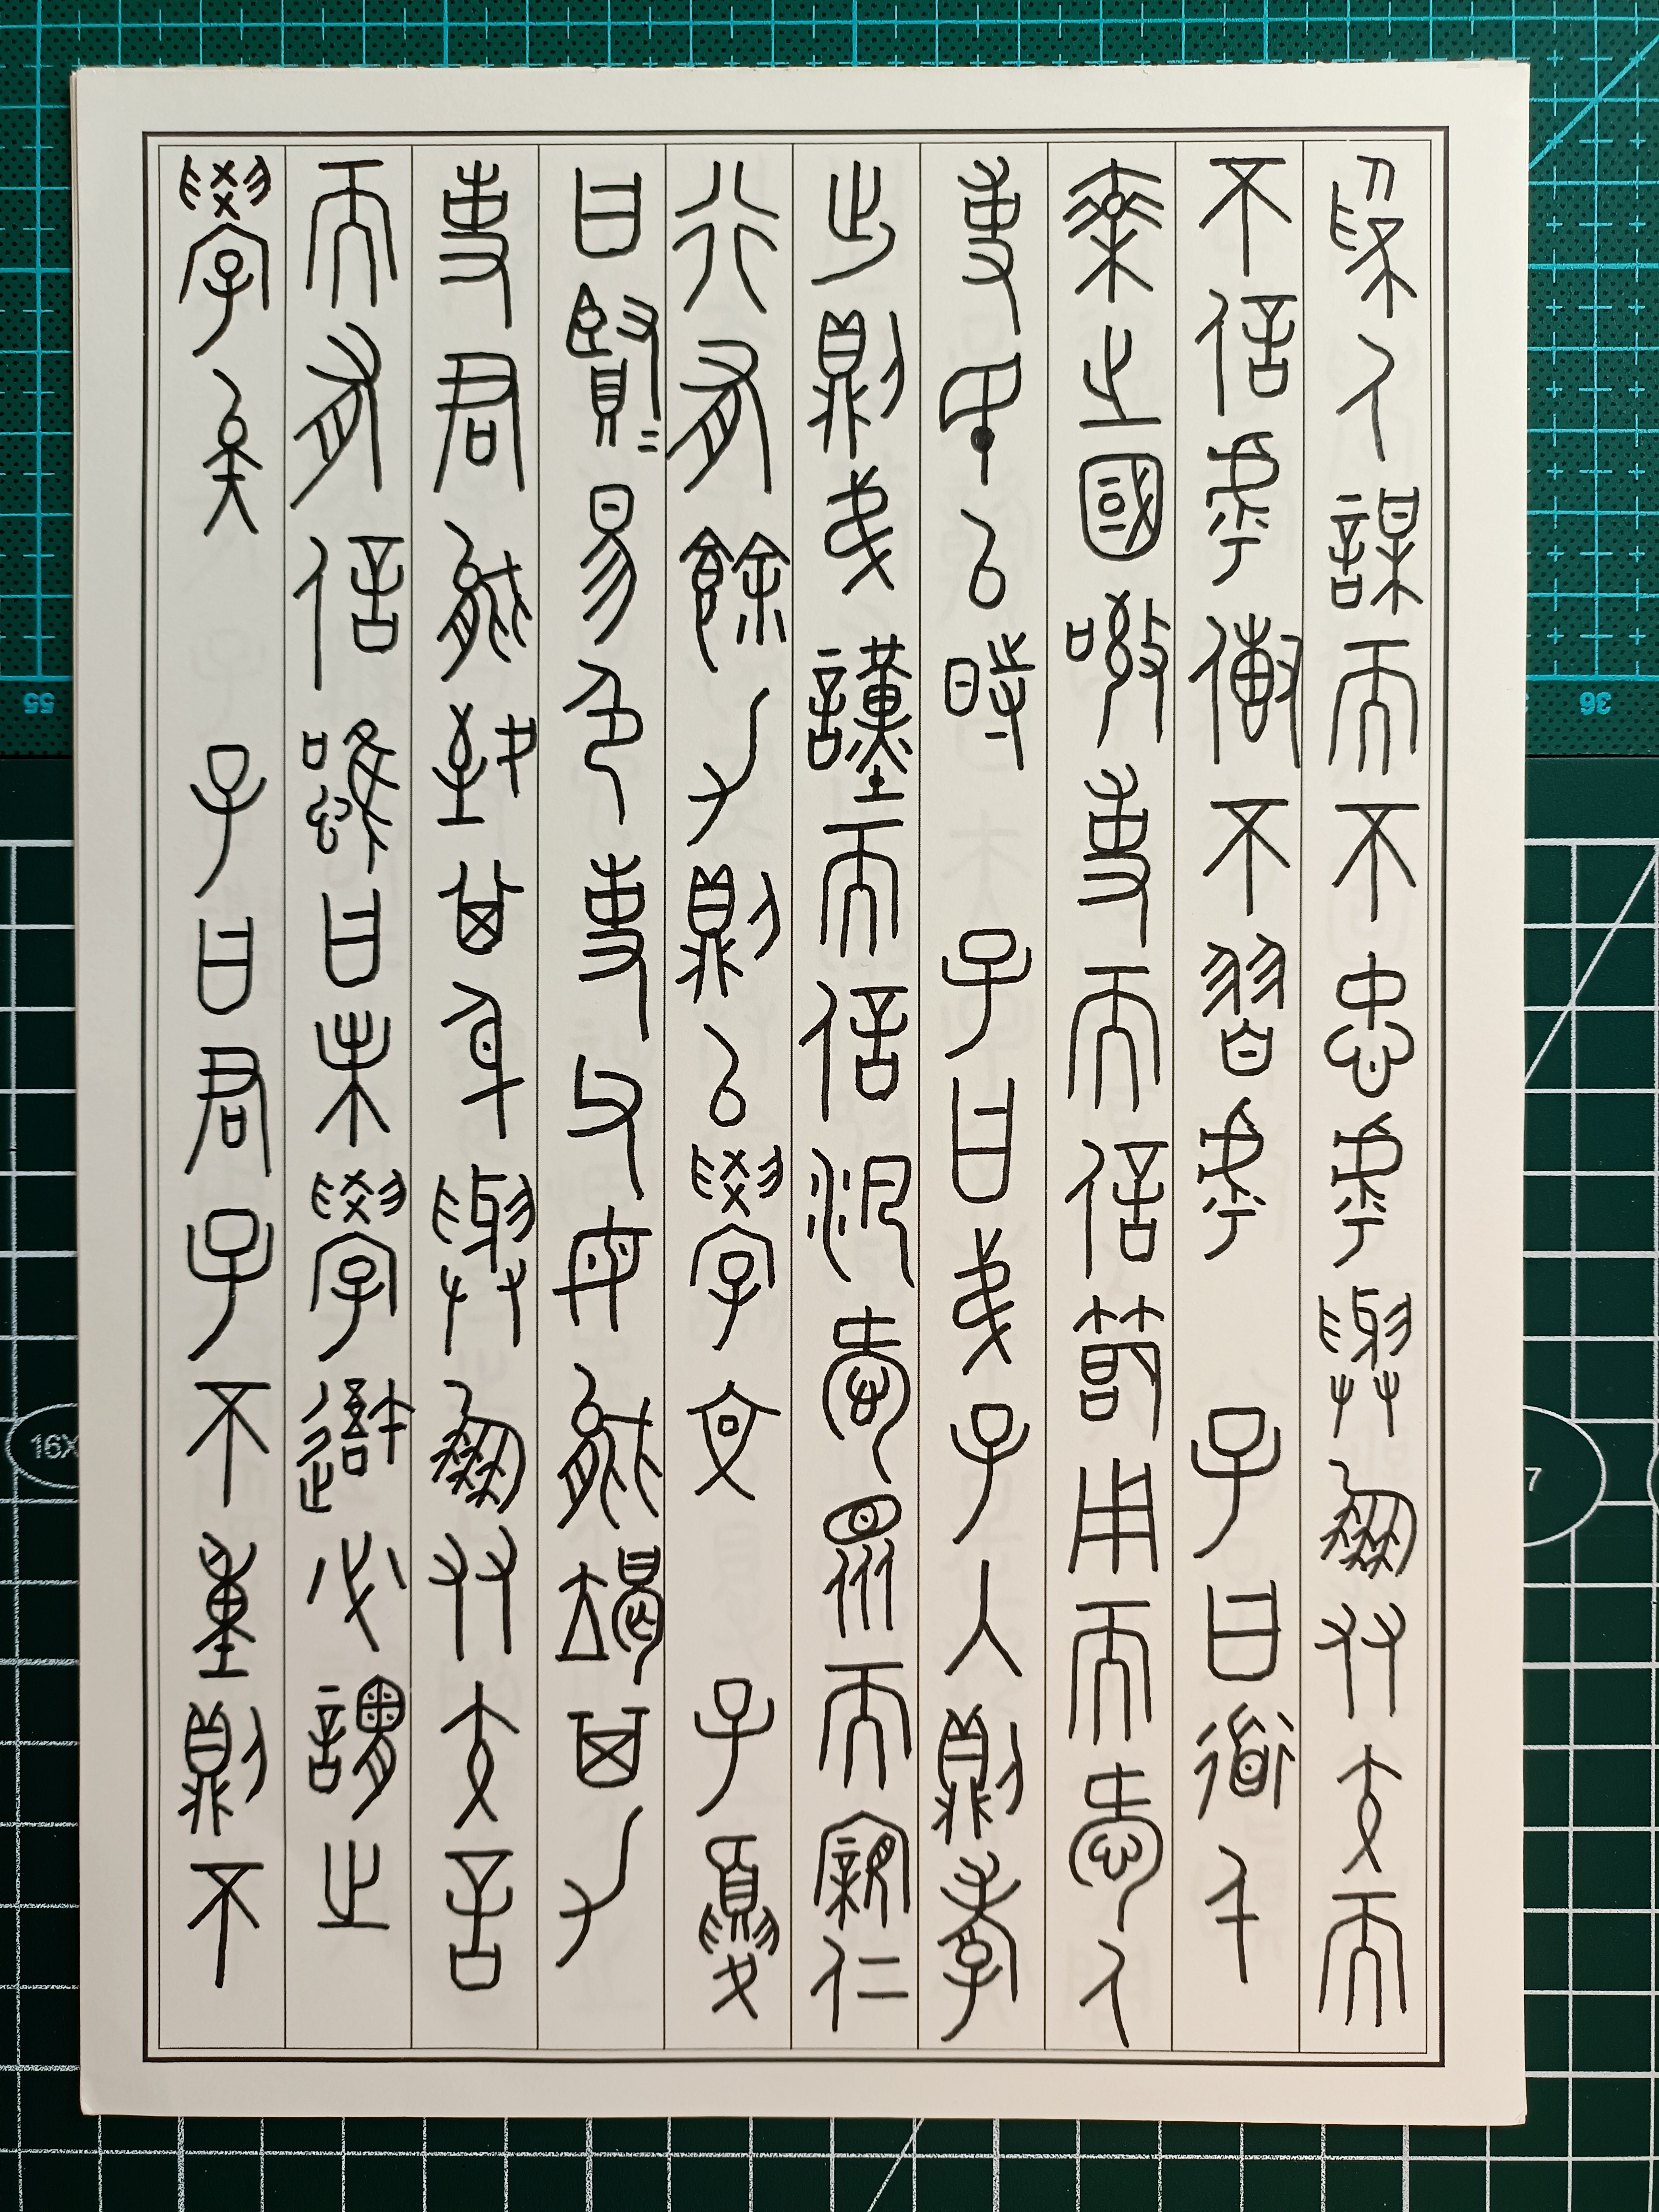 為人謀而不忠乎與朋友交而
不信乎傳不習乎 子曰道千
乘之國敬事而信節用而愛人
使民以時 子曰弟子入則孝
出則弟謹而信汎愛眾而親仁
行有餘力則以學文 子夏
曰賢=易色事父母能竭其力
事君能致其身與朋友交言
而有信雖曰未學吾必謂之
學矣 子曰君子不重則不